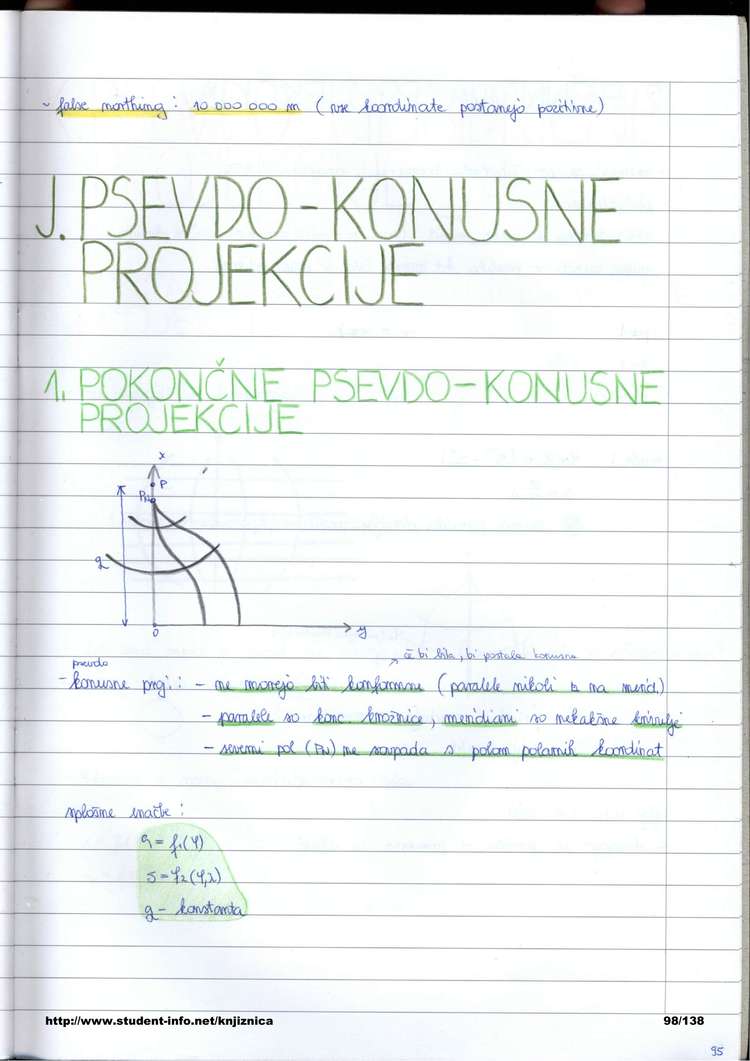 - false northing: 10 000 000 m (vse koordinate postanejo pozitivne)
J. PSEVDO-KONUSNE
PROJEKCIJE
1. POKONČNE PSEVDO-KONUSNE
PROJEKCIJE
x
P
PN
q
0
y
če bi bila, bi postala konusna
psevdo
- konusne proj.: - ne morejo biti konformne (paralele nikoli ⊥ na merid.)
- paralele so konc. krožnice, meridiani so nekakšne krivulje
- severni pol (PN) ne sovpada s polom polarnih koordinat
splošne enačbe:
= f1(φ)
= f2(φ,λ)
q - konstanta
http://www.student-info.net/knjiznica
98/138
95